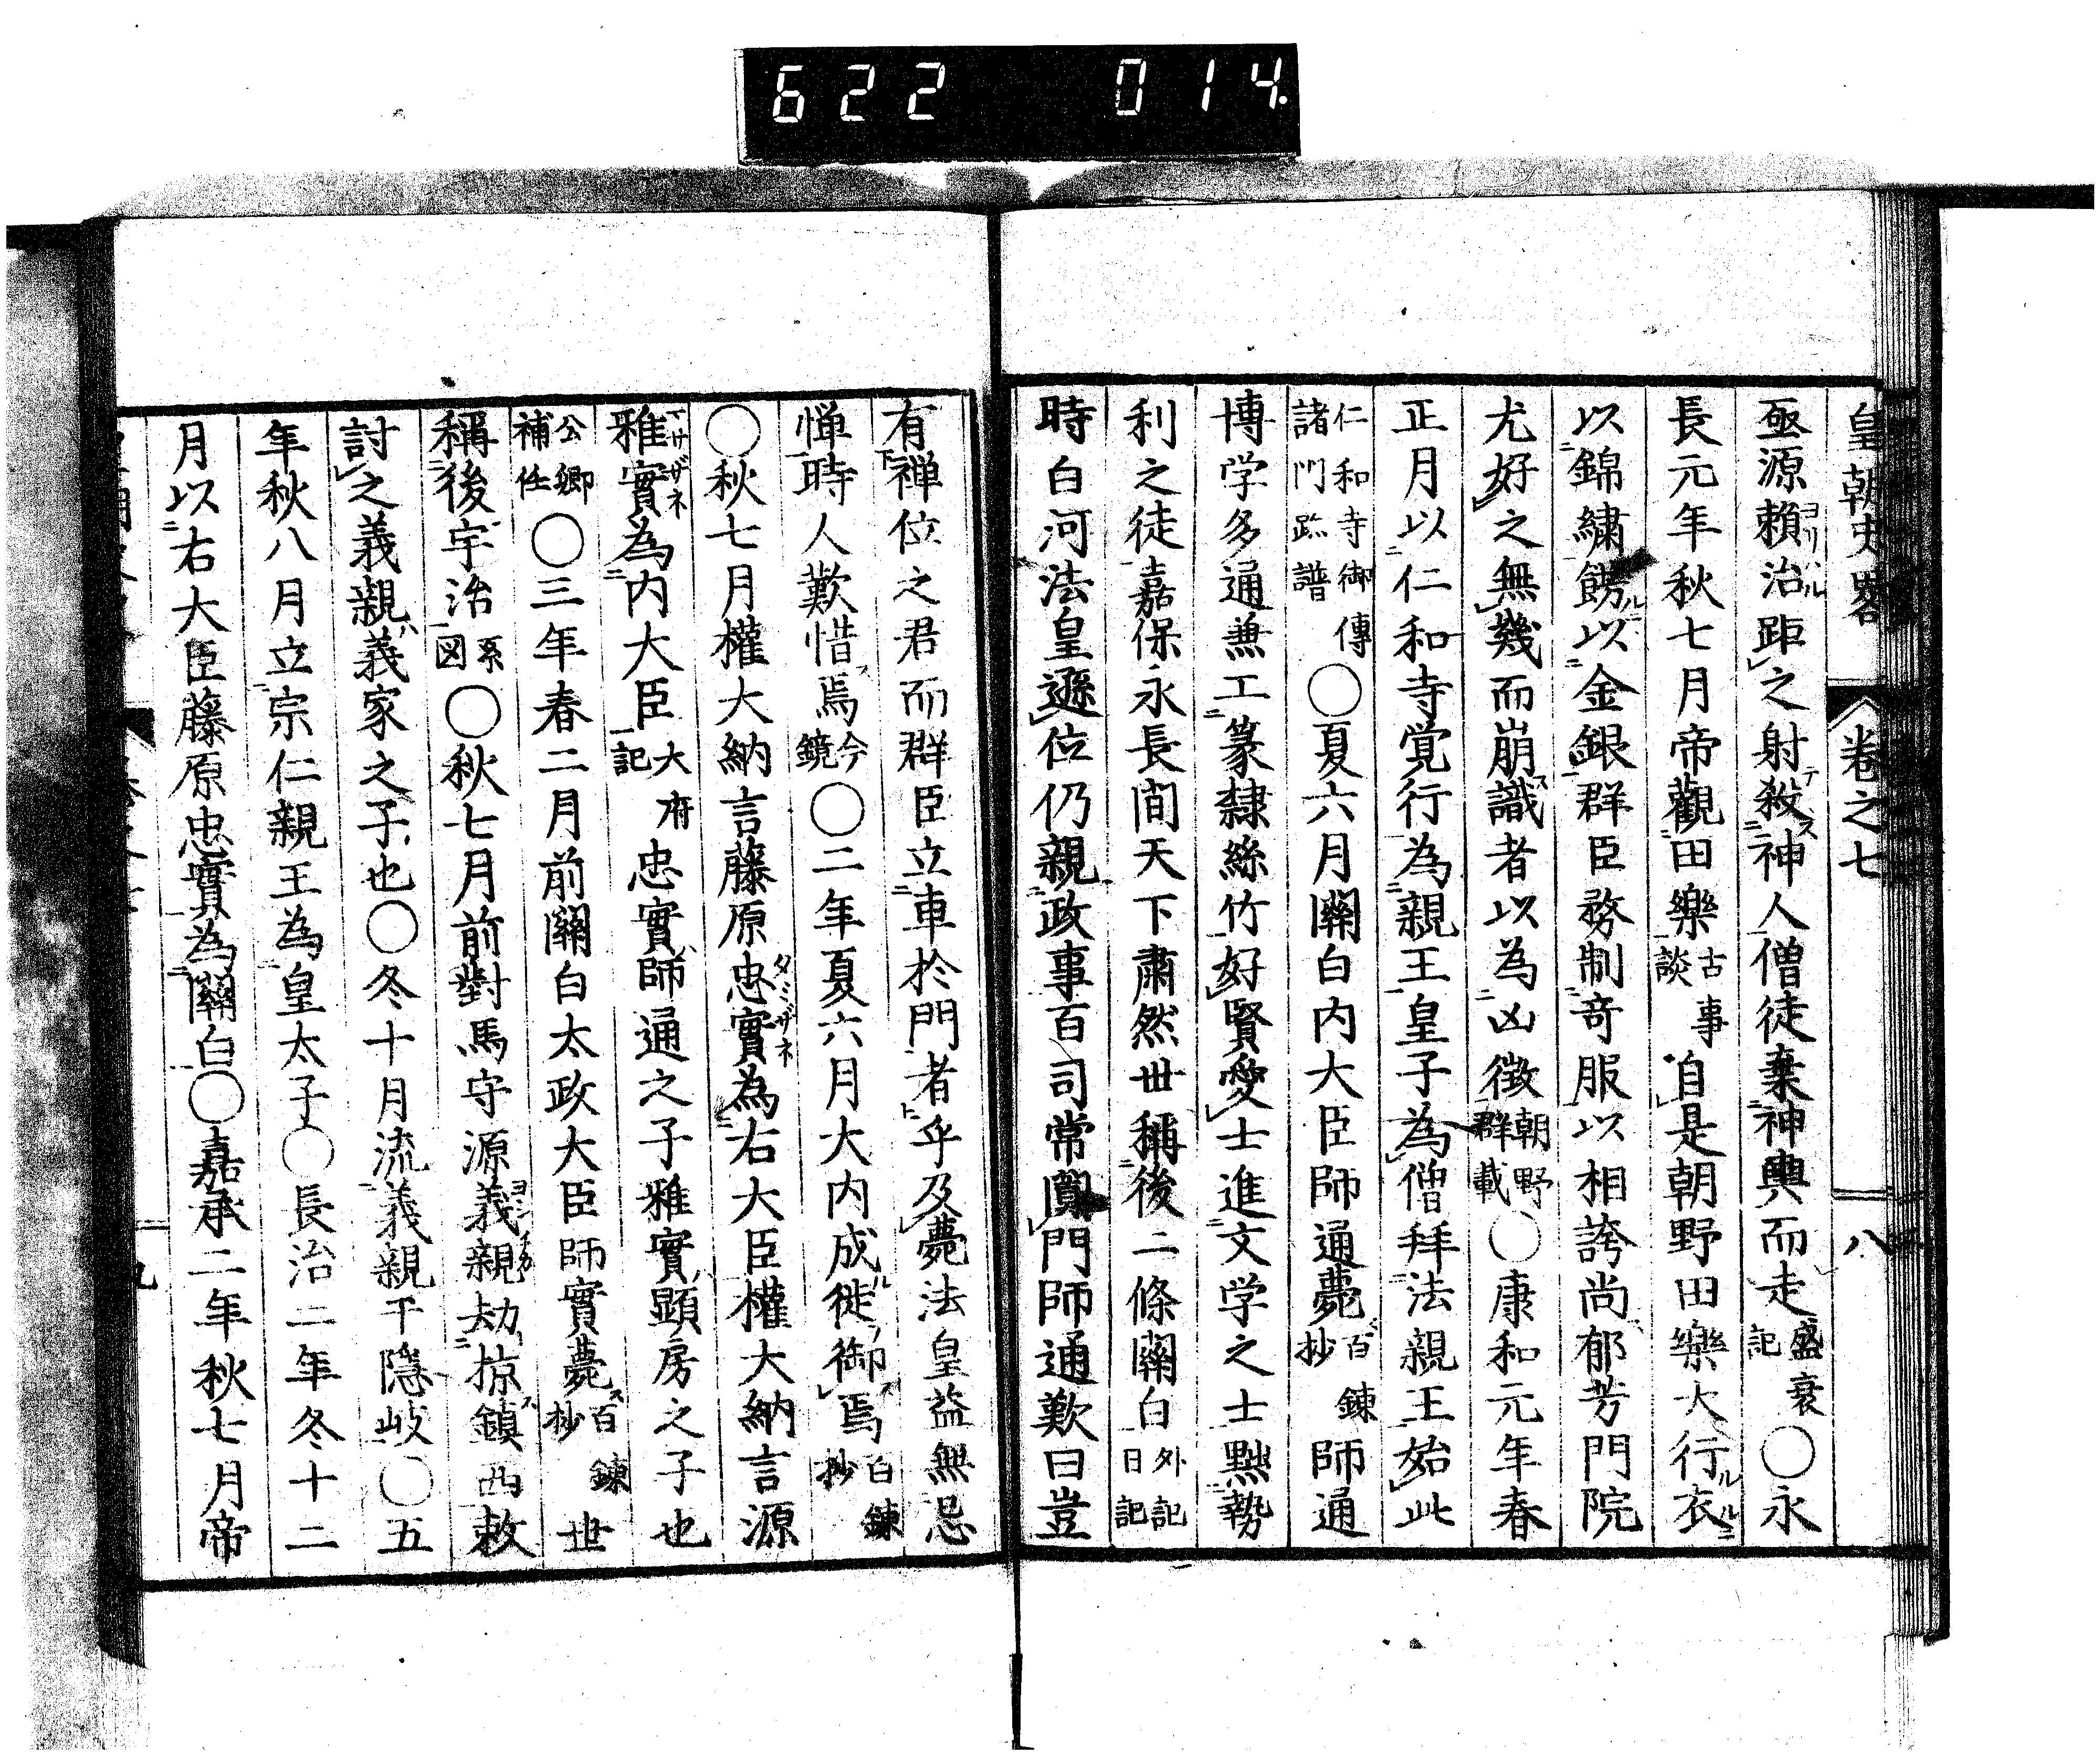 622 014
皇朝史畧 卷之七 八
亟源頼治距之射殺神人僧徒棄神輿而走盛衰記〇永
長元年秋七月帝觀田樂古事談自是朝野田樂大行衣
以錦繍餝以金銀群臣務制奇服以相誇尚郁芳門院
尤好之無幾而崩識者以為凶徴朝野群載〇康和元年春
正月以仁和寺覚行為親王皇子為僧拜法親王始此
仁和寺御傳諸門跡譜〇夏六月關白内大臣師通薨百錬抄師通
博学多通兼工篆隸絲竹好賢愛士進文学之士黜勢
利之徒嘉保永長間天下肅然世稱後二條關白外記日記
時白河法皇遜位仍親政事百司常闐門師通歎曰豈
有禅位之君而群臣立車於門者乎及薨法皇益無忌
憚時人歎惜焉今鏡〇二年夏六月大内成徙御焉百錬抄
〇秋七月權大納言藤原忠實為右大臣權大納言源
雅實為内大臣大府記忠實師通之子雅實顕房之子也
公卿補任〇三年春二月前關白太政大臣師實薨百錬抄世
稱後宇治系図〇秋七月前對馬守源義親劫掠鎮西敕
討之義親義家之子也〇冬十月流義親于隱岐〇五
年秋八月立宗仁親王為皇太子〇長治二年冬十二
月以右大臣藤原忠實為關白〇嘉承二年秋七月帝